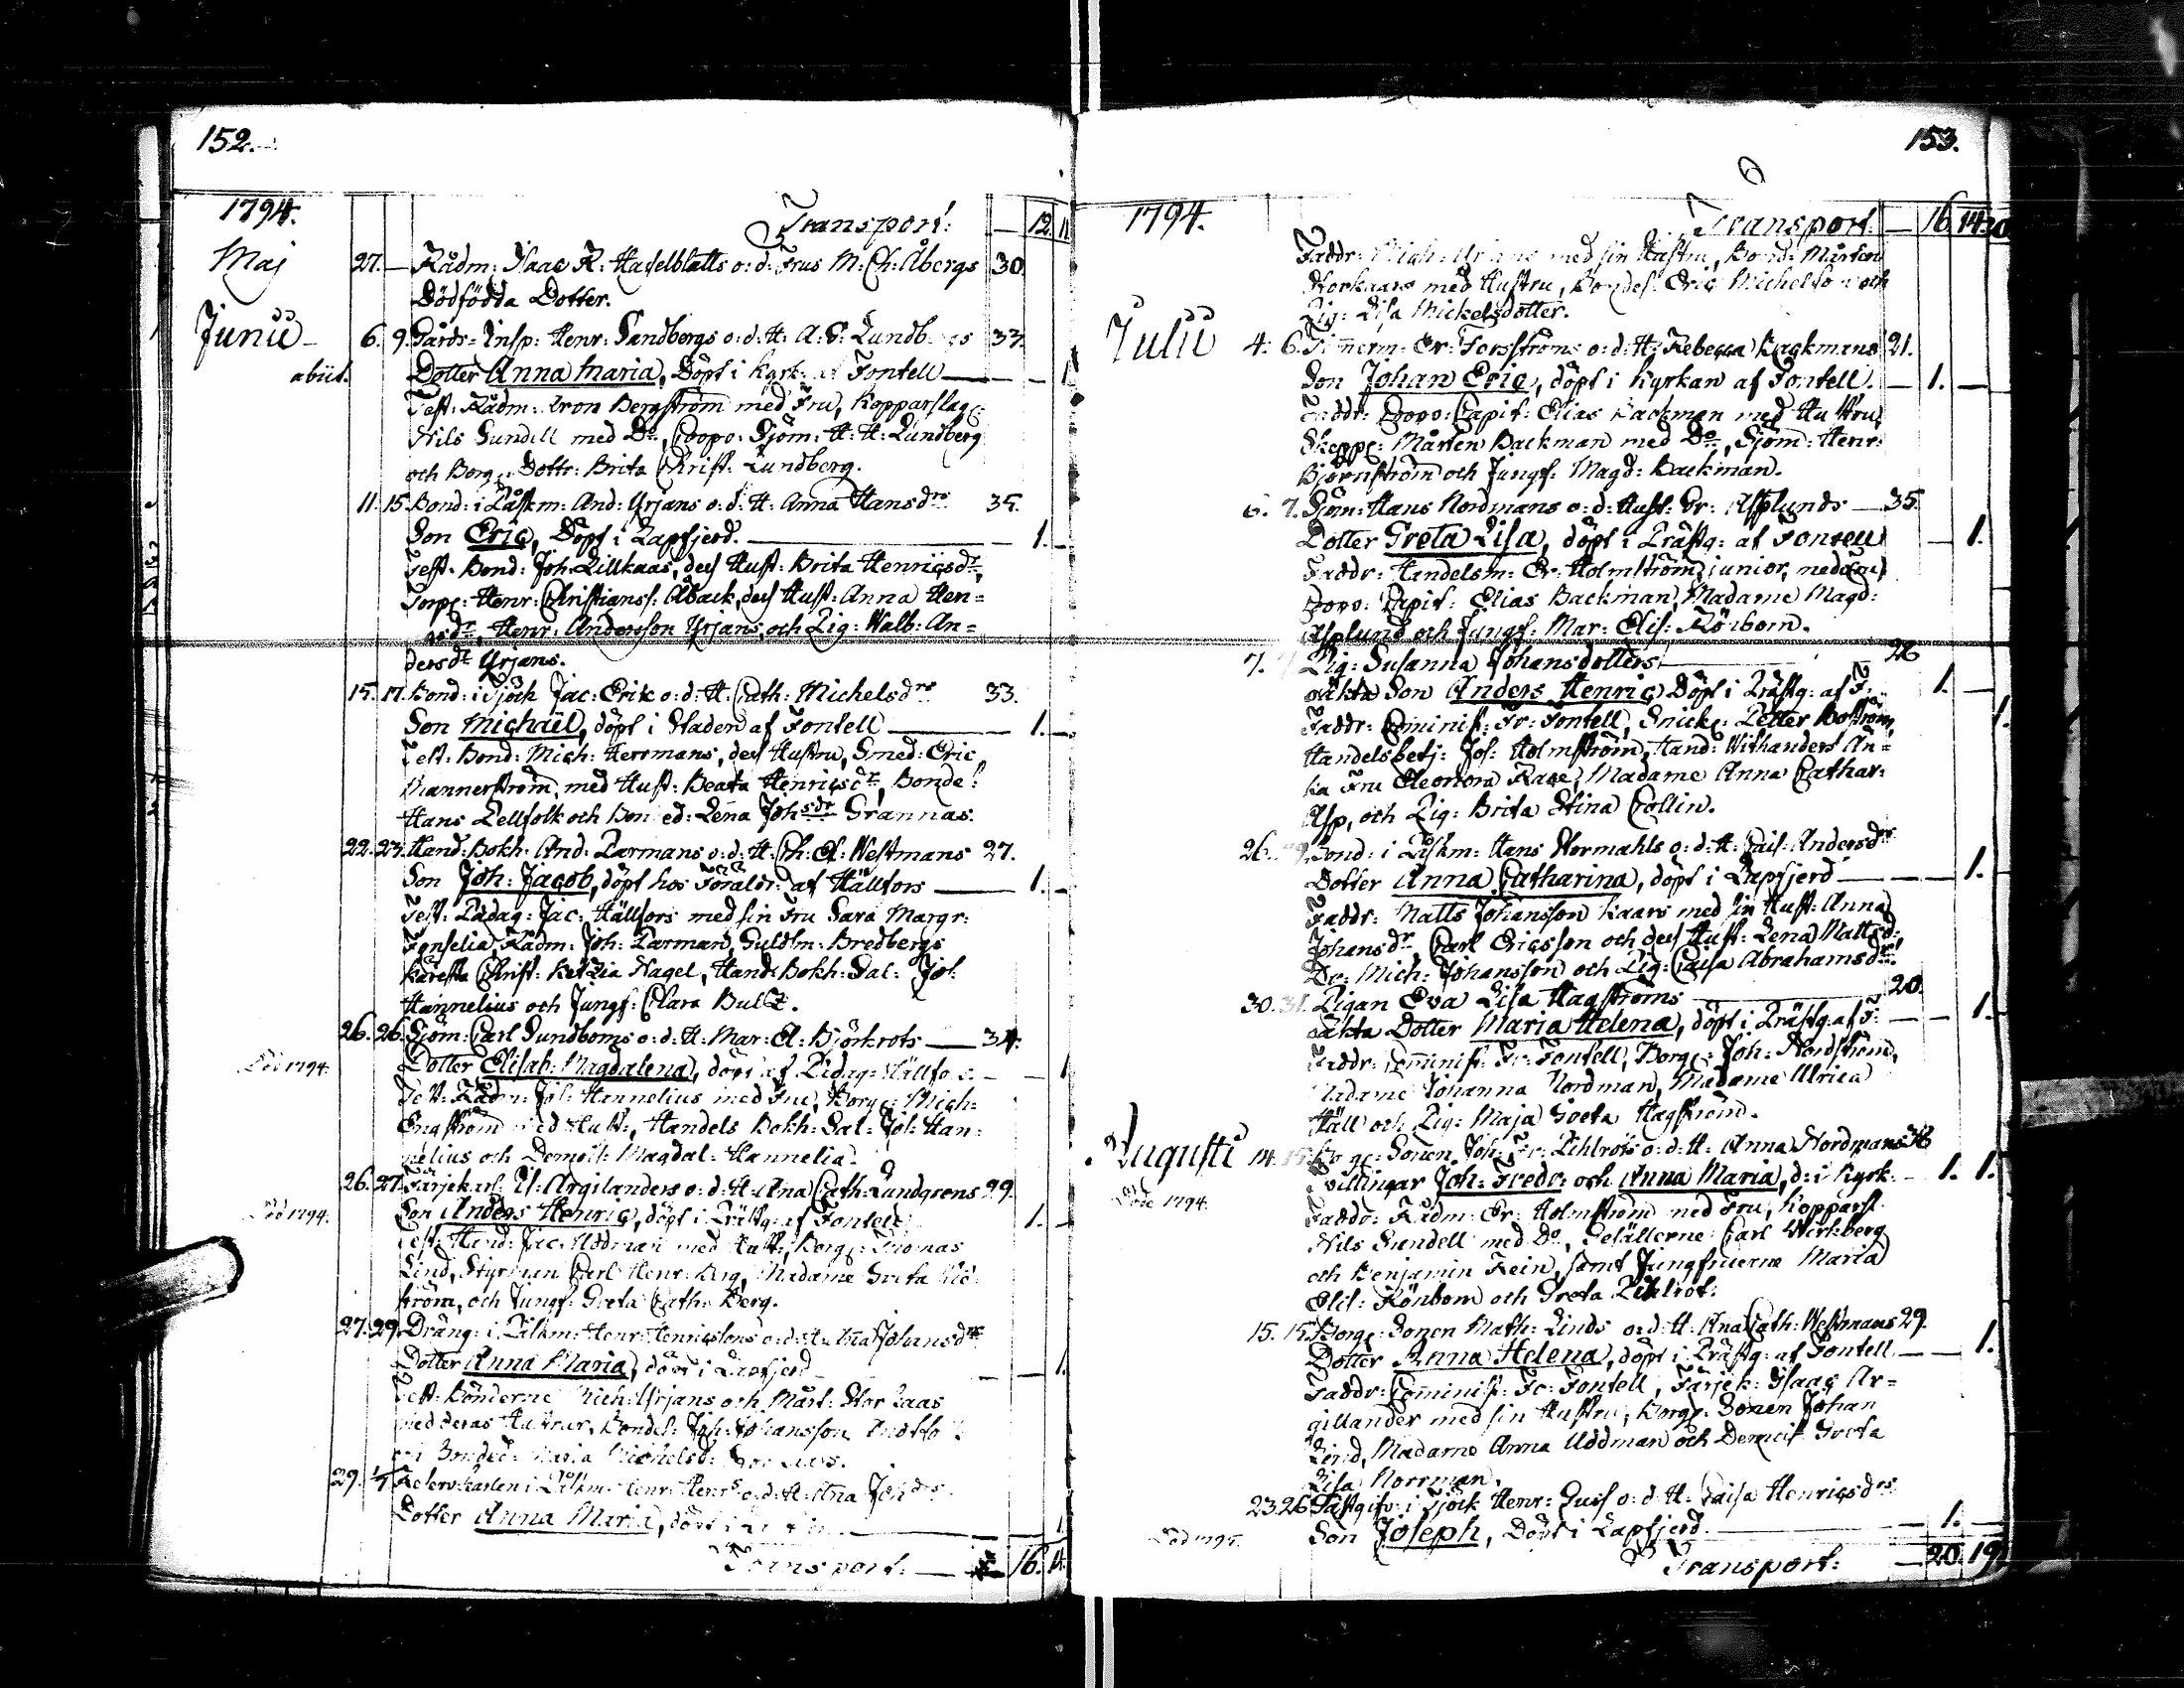 152.
1794. Transport: — 12. 11
Maj 27. — Rådm: Isaac R: Haselblatts o: d: Frus M: Ch: Åbergs 30.
Dödfödda Dotter.
Junii 6. 9. Gårds-Insp: Henr: Sandbergs o: d: H: A: S: Lundbergs 33.
abiit. Dotter Anna Maria, Döpt i Kyrk: af Fontell — — 1
Test: Rådm: Aron Bergström med Fru, Kopparslag:
Nils Sundell med Do, Coopv: Sjöm: H: H: Lundberg
och Borg: Dottr: Brita Christ: Lundberg.
11. 15. Bond: i Påskm: And: Yrjans o: d: H: Anna Hansdrs 35.
Son Eric, Döpt i Lapfjerd. — 1. —
Test: Bond: Joh: Lillkaas, dess Hust: Brita Henricsdr,
Torp: Henr: Christianss: Åback, dess Hust: Anna Hen=
dr, Henr: Andersson Yrjans, och Pig: Walb: An=
dersdr Yrjans.
15. 17. Bond: i Tjöck Jac: Erik o: d: H: Cath: Michelsdrs 33.
Son Michaël, döpt i Staden af Fontell — 1. —
Test: Bond: Mich: Herrmans, dess Hustru, Smed: Eric
Mannerström, med Hust: Beata Henricsdr, Bonde:
Hans Lellfolk och Lena Johsdr Grannas.
22. 23. Hand: Bokh: And: Parmans o: d: H: Ch: El: Westmans 27.
Son Joh: Jacob, döpt hos Föräldr: af Hällfors — 1. —
Test: Pädag: Jac: Hällfors med sin Fru Sara Margr:
Rådm: Joh: Parman, Guldsm: Bredbergs
Käresta Christ: Ketzia Nagel, Hand: Bokh: Sal: Joh:
Hannelius och Jungf: Clara Bultz.
26. 26. Sjöm: Carl Sundboms o: d: H: Mar: El: Björkrots — 34.
Död 1794. Dotter Elisab: Magdalena, döpt af Pädag: Hällfors — 1
Test: Rådm: Joh: Hannelius med Fru, Borg: Mich:
Engström med Hust:, Handels Bokh: Sal: Joh: Han=
nelius och Demois: Magdal: Hannelia.
26. 27. Färjekarl: Is: Argelanders o: d: H: Ana Cath: Lundgrens 29.
Död 1794. Son Anders Henric, döpt i Prästg: af Fontell 1. —
Test: Hand: Jac: Uddman med Hust:, Borg: Thomas
Lind, Styrman Carl Henr: Berg, Madame Greta
ström, och Jungf: Greta Cath: Berg.
27. 29. Dräng: i Påskm: Henr: Henricssons o: d: H: Johansdrs
Dotter Anna Maria, döpt i Lapfjerd — 1.
Test: Bönderne Mich: Yrjans och Mårt: Storkaas
med deras Hustrur, Bondes: Joh: Johansson
Bonded: Maria Michelsd:
29. 1/7 i Påskm: Henr: Henrs: o: d: H: Ana Johdrs
Dotter Anna Maria, döpt — 1
Transport: — 16. 14.
153.
1794. Transport: — 16. 14. 30
Faddr: Mich: Yrjans med sin Hustru, Bond: Mårten
Storkaars med Hustru, Bondes: Eric Michelsson och
Pig: Lisa Mickelsdotter.
Julii 4. 6. Timerm: Er: Forsströms o: d: H: Rebecca Backmans 21.
Son Johan Eric, döpt i Kyrkan af Fontell. — 1. —
Faddr: Coopv: Capit: Elias Backman med Hustru,
Skepp: Mårten Backman med Do, Sjöm: Henr:
Björnström och Jungf: Magd: Backman.
6. 7. Sjöm: Hans Nordmans o: d: Hust: Br: Asplunds — 35.
Dotter Greta Lisa, döpt i Prästg: af Fontell — 1.
Faddr: Handelsm: Er: Holmström, junior, med Fru,
Coopv: Capit: Elias Backman, Madame Magd:
Asplund och Jungf: Mar: Elis: Rönbom.
7. Pig: Susanna Johansdotters — 26
oäkta Son Anders Henric, Döpt i Prästg: af F: 1. —
Faddr: Cominist: Fr: Fontell, Snick: Petter Boström, 1.
Handelsbetj: Joh: Holmström, Hand: Withanders An=
ka Fru Eleonora Race, Madame Anna Cathar:
Asp, och Pig: Brita Stina Collin.
26. Bond: i Påskm: Hans Normahls o: d: H: Cais: Andersdrs
Dotter Anna Catharina, döpt i Lapfjerd — — 1.
Faddr: Matts Johansson Kaars med sin Hust: Anna
Johansdr, Carl Ericsson och dess Hust: Lena Mattsd:
Dr: Mich: Johansson och Pig: Caisa Abrahamsdr.
30. 31. Pigan Eva Lisa Hagströms — 20.
oäkta Dotter Maria Helena, döpt i Prästg: af F: — 1.
Faddr: Cominist: Fr: Fontell, Borg: Joh: Nordström,
Madame Johanna Nordman, Madame Ulrica
Häll och Pig: Maja Greta Hagström.
Augusti 14. 15. Borg: Sonen Joh: Fr: Pihlrots o: d: H: Anna Nordmans 36
Död 1794. Tvillingar Joh: Fredr: och Anna Maria, d: i Kyrk: — 1. 1.
Faddr: Rådm: Er: Holmström med Fru, Kopparsl:
Nils Sundell med Do, Gesällerne Carl Wirkberg
och Benjamin Fein, samt Jungfruerne Maria
Elis: Rönbom och Greta Pihlrot:
15. 15. Borg: Sonen Math: Linds o: d: H: Ana Cath: Westmans 29.
Dotter Anna Helena, döpt i Prästg: af Fontell — — 1.
Faddr: Cominist: Fr: Fontell, Färjek: Isaac Ar=
gillander med sin Hustru, Borg: Sonen Johan
Lind, Madame Anna Uddman och Demois: Greta
Lisa Norrman.
23. 26. Gästgifv: i Tjöck Henr: o: d: H: Caisa Henricsdrs
Död 1795. Son Joseph, Döpt i Lapfjerd — 1. —
Transport: — 20. 19